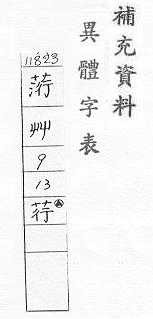 補充資料
異體字表
11823
艸
9
13
荇Ⓐ